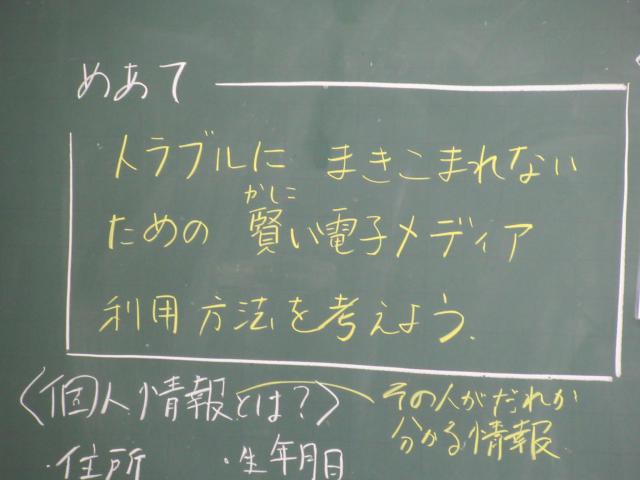 めあて
トラブルに まきこまれない
かしこ
ための 賢い電子メディア
利用方法を考えよう.
〈個人情報とは?〉
その人がだれか
分かる情報
・住所 ・生年月日